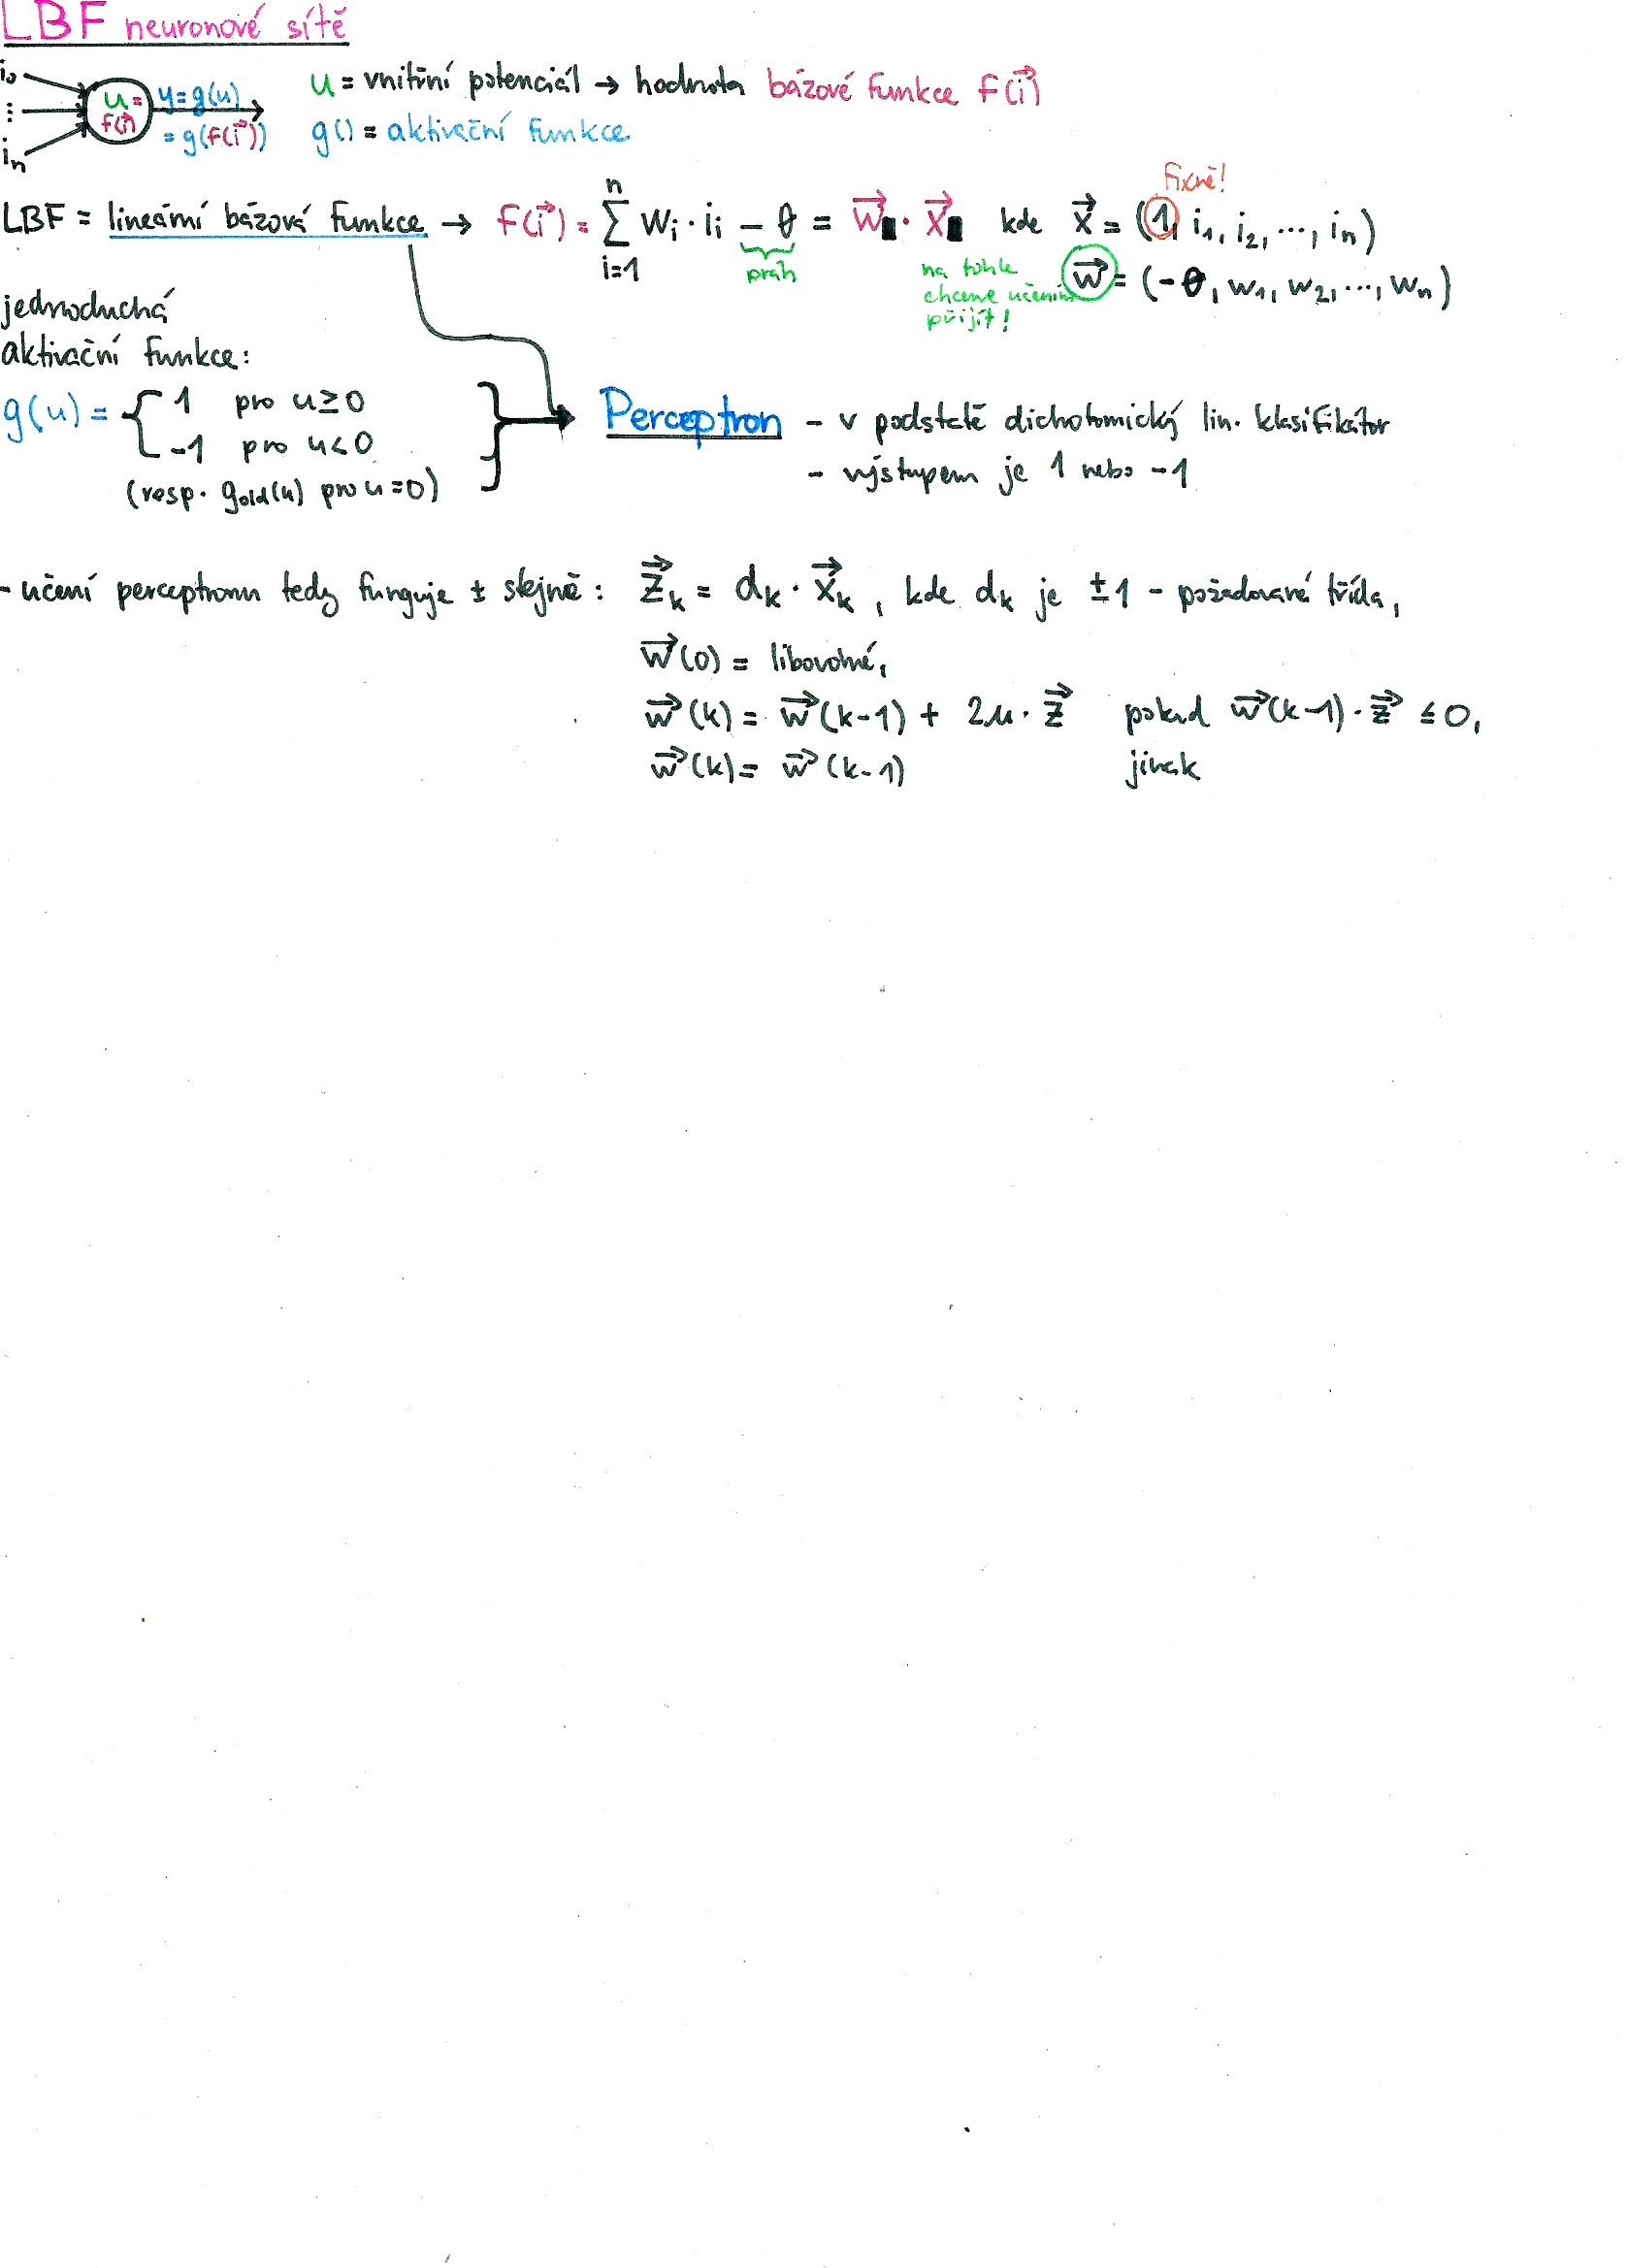 LBF neuronové sítě
i₀
⋮
iₙ
u =
f(i⃗)
y = g(u)
= g(f(i⃗))
u = vnitřní potenciál → hodnota bázové funkce f(i⃗)
g() = aktivační funkce
fixně!
LBF = lineární bázová funkce → f(i⃗) = ∑ wᵢ · iᵢ - θ = w⃗ · x⃗ kde x⃗ = (1, i₁, i₂, ..., iₙ)
n
i=1
práh
na tohle
chceme učením
přijít!
w⃗ = (-θ, w₁, w₂, ..., wₙ)
jednoduchá
aktivační funkce:
g(u) = { 1 pro u ≥ 0
-1 pro u < 0
(resp. g_old(u) pro u = 0)
Perceptron - v podstatě dichotomický lin. klasifikátor
- výstupem je 1 nebo -1
- učení perceptronu tedy funguje ± stejně: z⃗ₖ = dₖ · x⃗ₖ, kde dₖ je ±1 - požadovaná třída,
w⃗(0) = libovolné,
w⃗(k) = w⃗(k-1) + 2μ · z⃗ pokud w⃗(k-1) · z⃗ ≤ 0,
w⃗(k) = w⃗(k-1) jinak